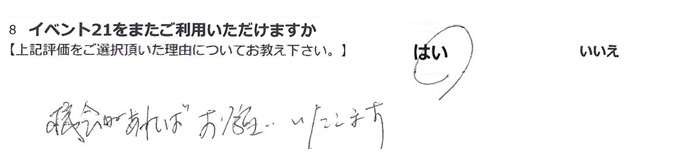 8 イベント21をまたご利用いただけますか
【上記評価をご選択頂いた理由についてお教え下さい。】 はい いいえ
機会があればお願いいたします